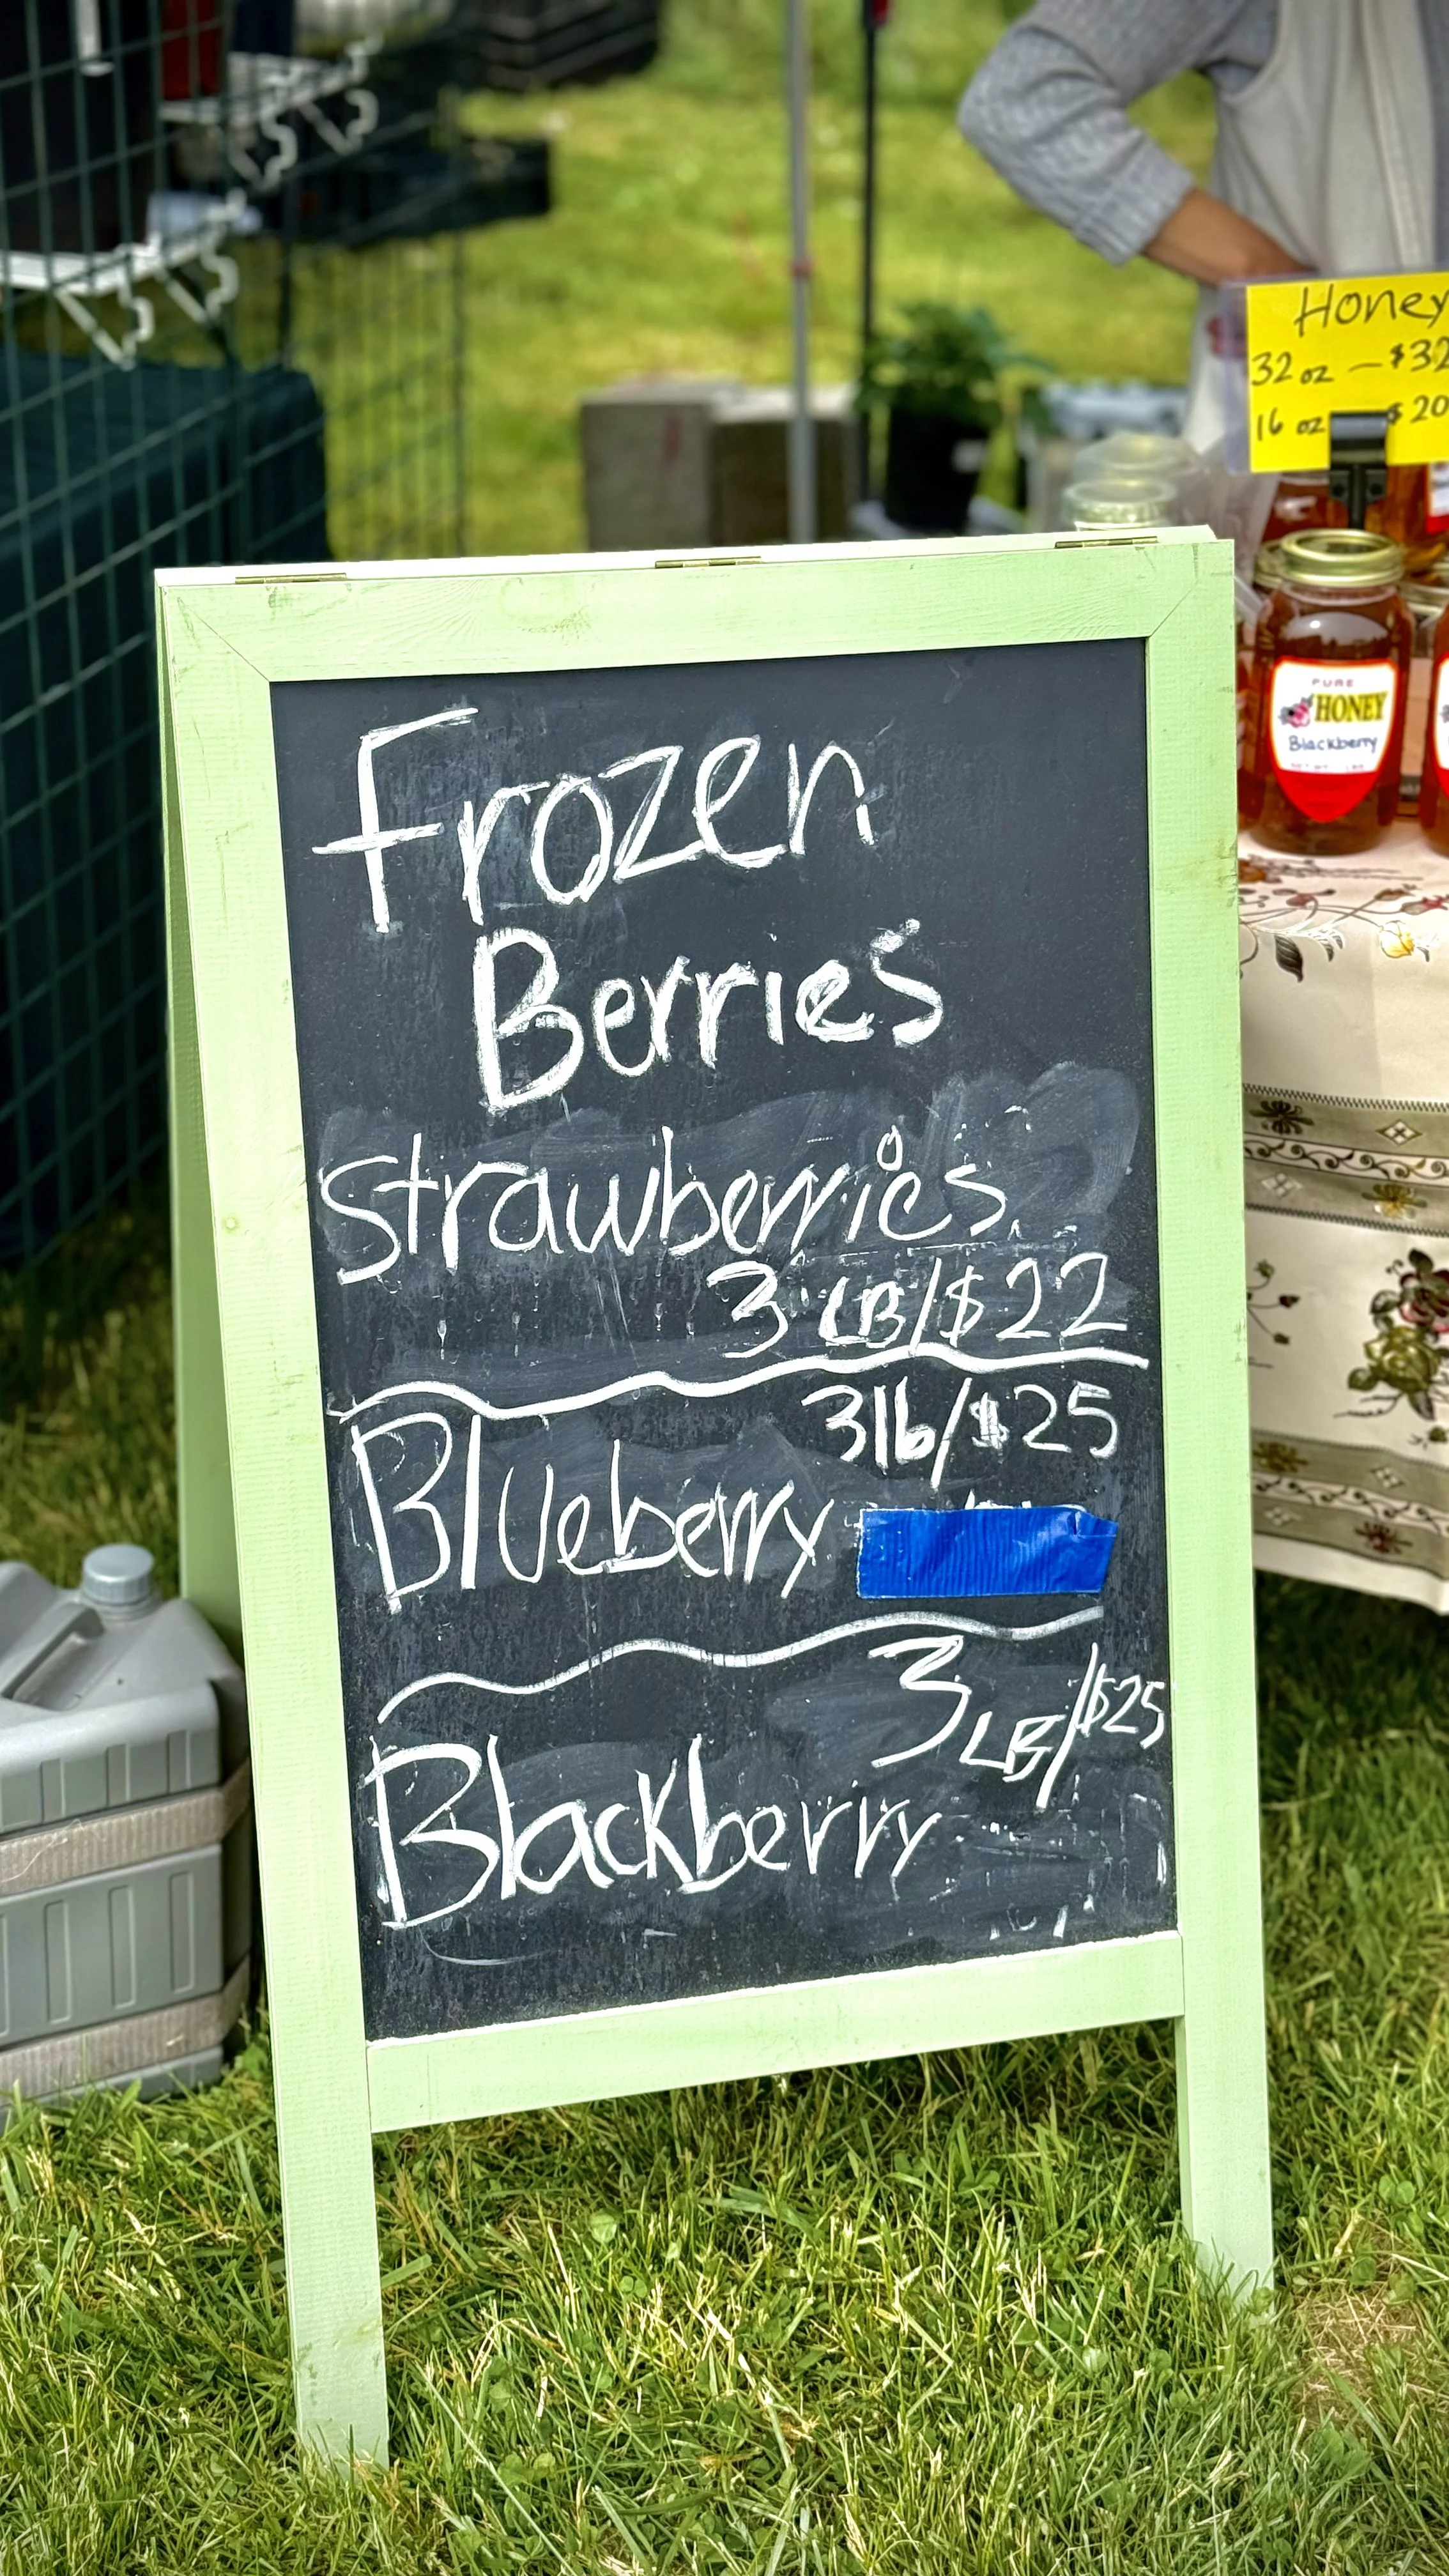 Honey
32 oz — $32
16 oz $20
PURE
HONEY
Blackberry
Frozen
Berries
Strawberries
3 LB/$22
3lb/$25
Blueberry
3 LB/$25
Blackberry